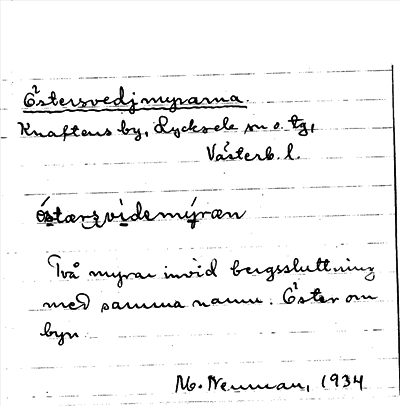 Östersvedjmyrarna.
Knaftens by, Lycksele sn o. tg,
Västerb. l.
östærsvidemýræn
Två myrar invid bergssluttning
med samma namn. Öster om
byn.
M. Neuman, 1934